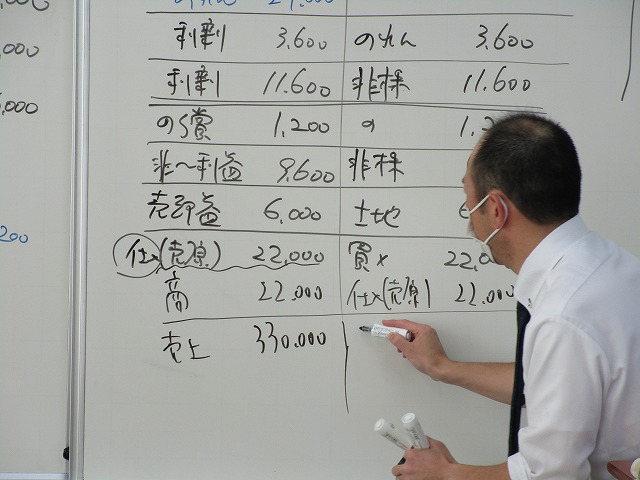 000
,000
,000
200
利剰 3.600 のれん 3.600
利剰 11.600 非株 11.600
の償 1.200 の 1.2
非〜利益 9.600 非株
売却益 6.000 土地
仕入(売原) 22,000 買× 22.0
商 22.000 仕入(売原) 22.000
売上 330.000